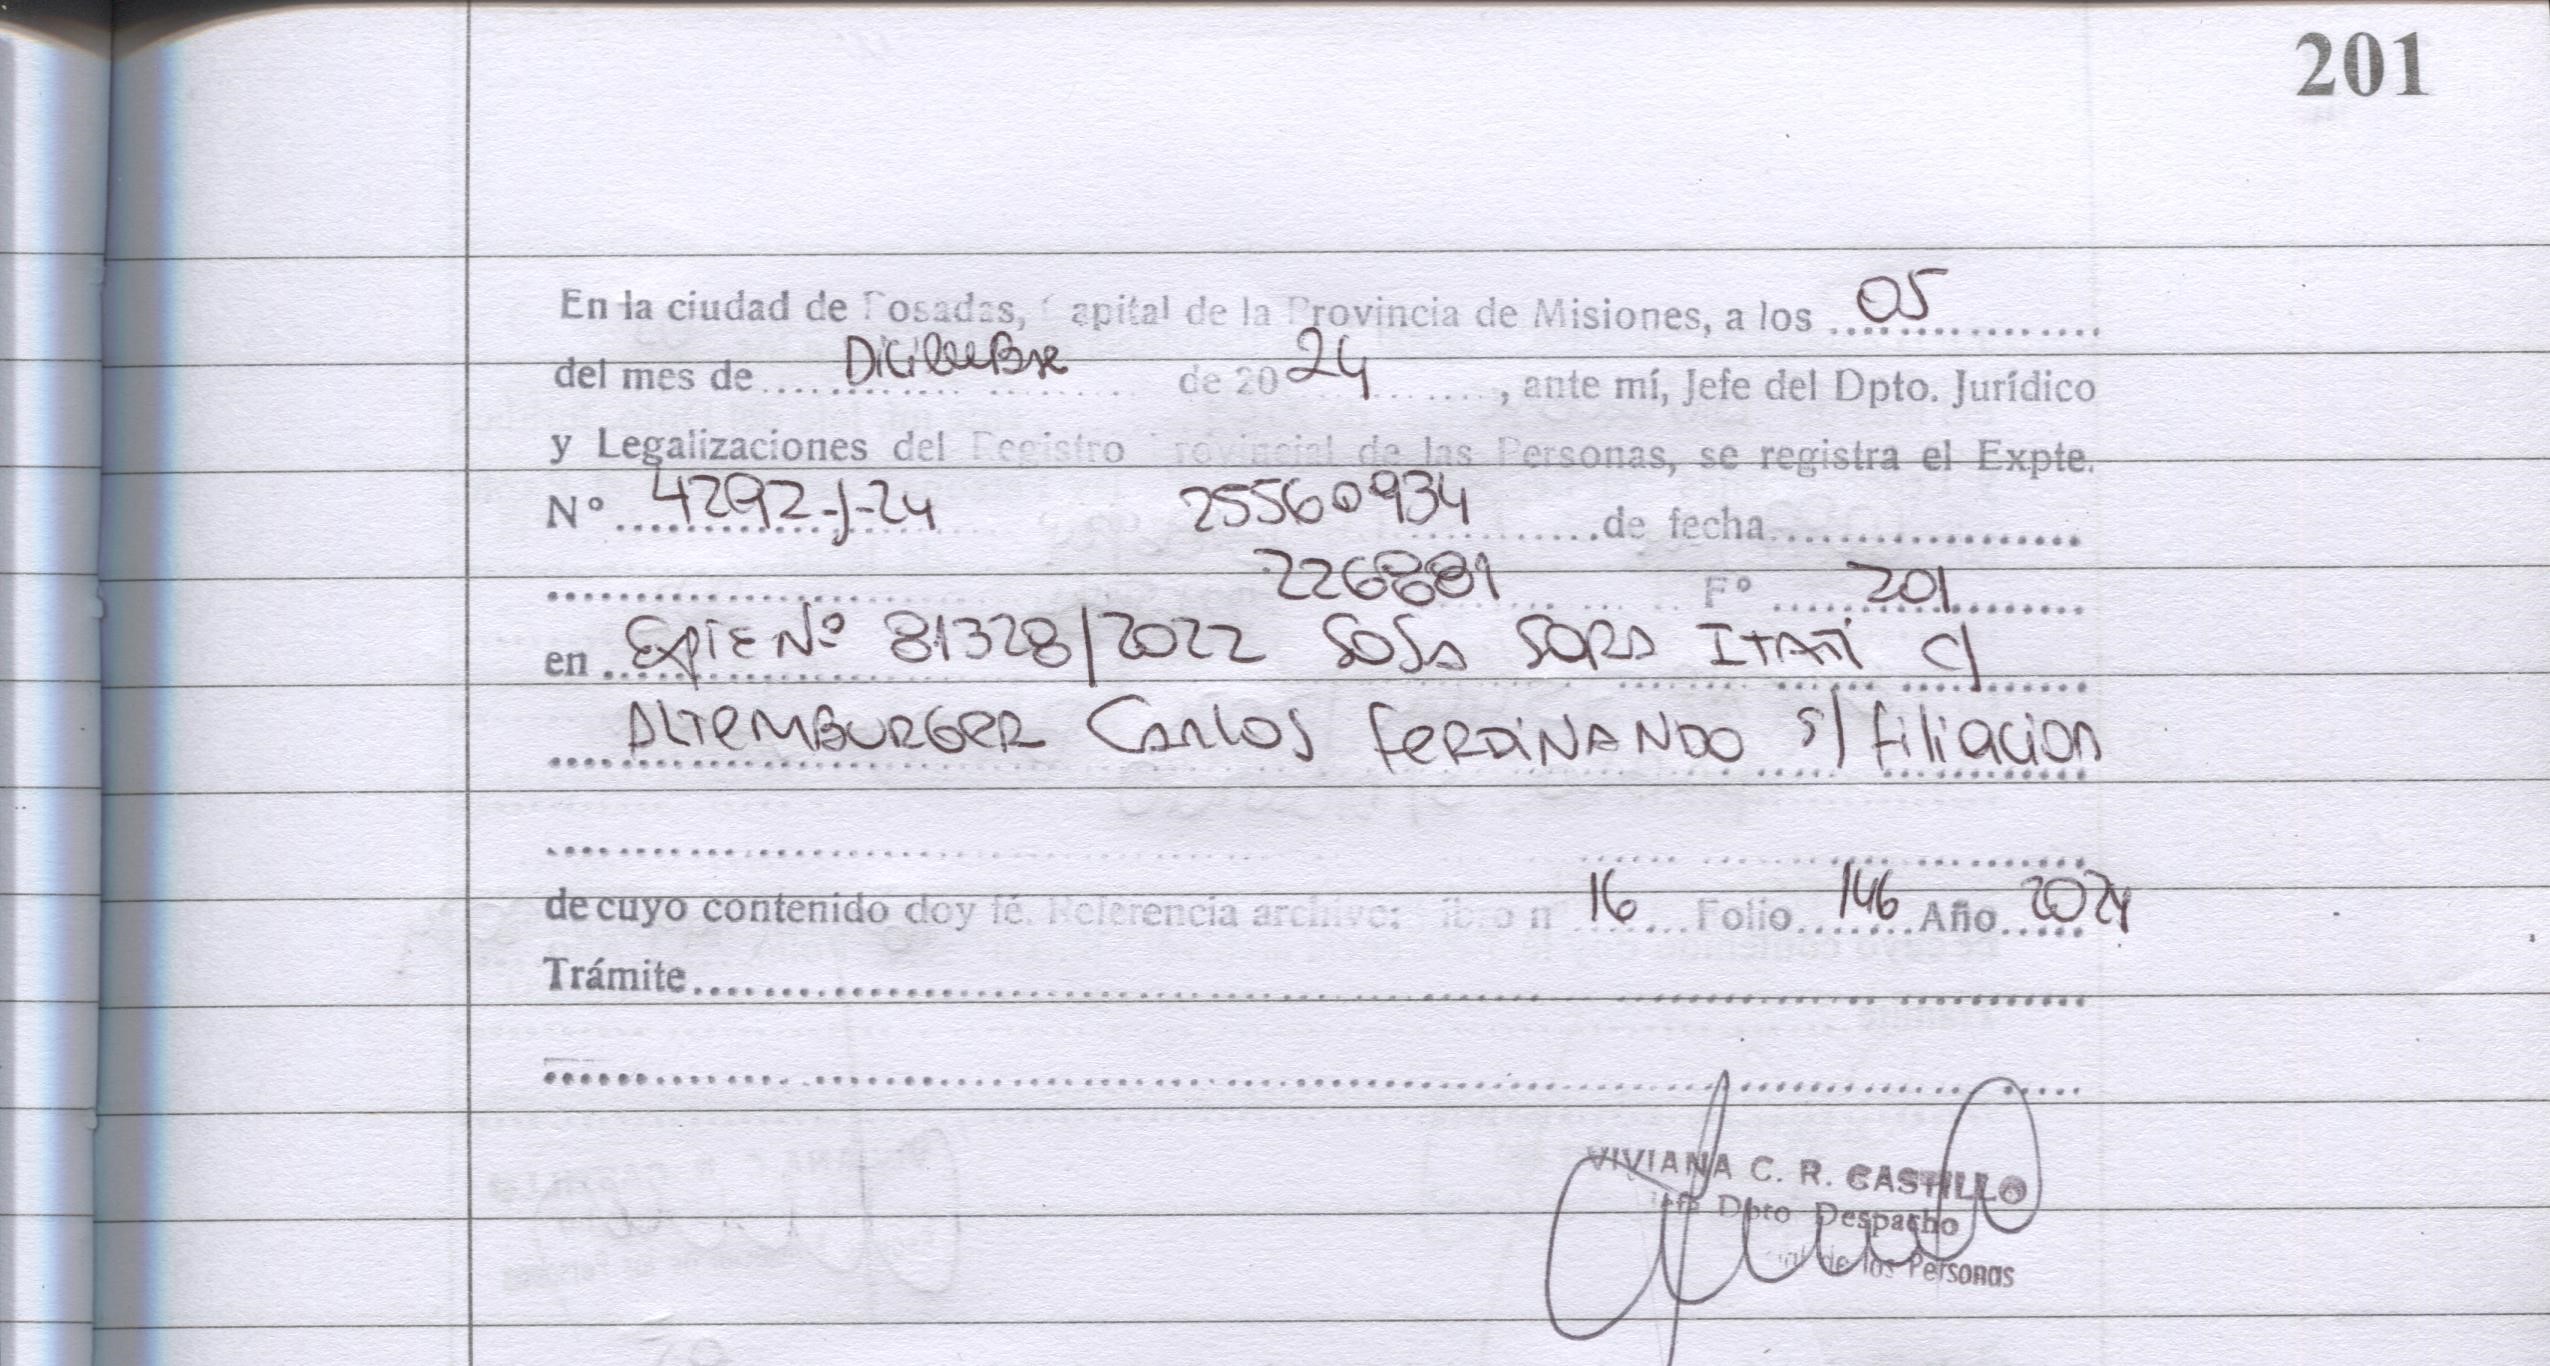 201
En la ciudad de Posadas, Capital de la Provincia de Misiones, a los 05
del mes de Diciembre de 2024, ante mí, Jefe del Dpto. Jurídico
y Legalizaciones del Registro Provincial de las Personas, se registra el Expte.
N° 4292-J-24 25560934 de fecha
226881 F° 201
en Expte Nº 81328/2022 SOSA SARA ITATI c/
ALTEMBURGER Carlos FERDINANDO s/ filiacion
de cuyo contenido doy fé. Referencia archivo: libro n° 16 Folio 146 Año 2024
Trámite
VIVIANA C. R. CASTILLO
Jefe Dpto Despacho
de las Personas